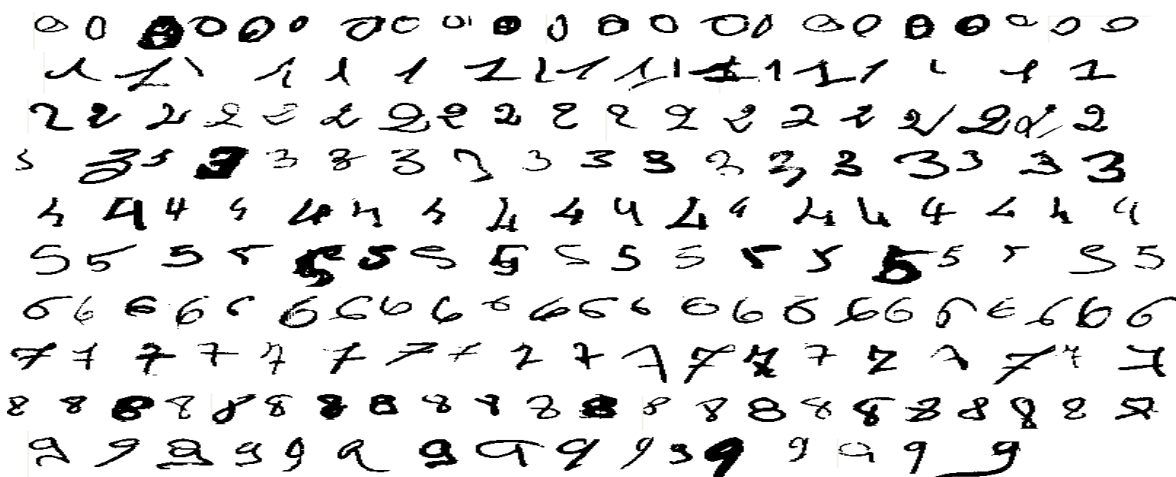 0 0 0 0 0 0 0 0 0 0 0 0 0 0 0 0 0 0 0 0 0 0
1 1 1 1 1 1 1 1 1 1 1 1 1 1 1 1 1 1 1
2 2 2 2 2 2 2 2 2 2 2 2 2 2 2 2 2 2 2
3 3 3 3 3 3 3 3 3 3 3 3 3 3 3 3 3 3
4 4 4 4 4 4 4 4 4 4 4 4 4 4 4 4 4 4
5 5 5 5 5 5 5 5 5 5 5 5 5 5 5 5 5 5
6 6 6 6 6 6 6 6 6 6 6 6 6 6 6 6 6 6 6 6 6 6 6
7 7 7 7 7 7 7 7 7 7 7 7 7 7 7 7 7 7 7
8 8 8 8 8 8 8 8 8 8 8 8 8 8 8 8 8 8 8 8 8 8
9 9 9 9 9 9 9 9 9 9 9 9 9 9 9 9